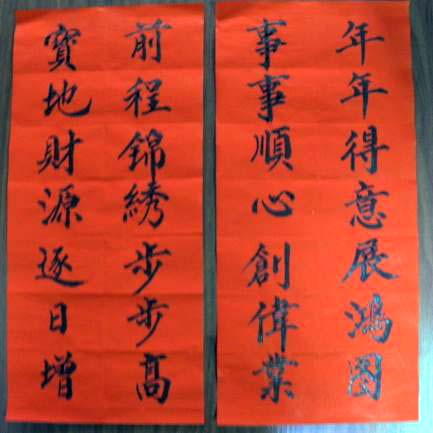 年年得意展鴻图
事事順心創偉業
前程錦綉步步高
寳地財源逐日增